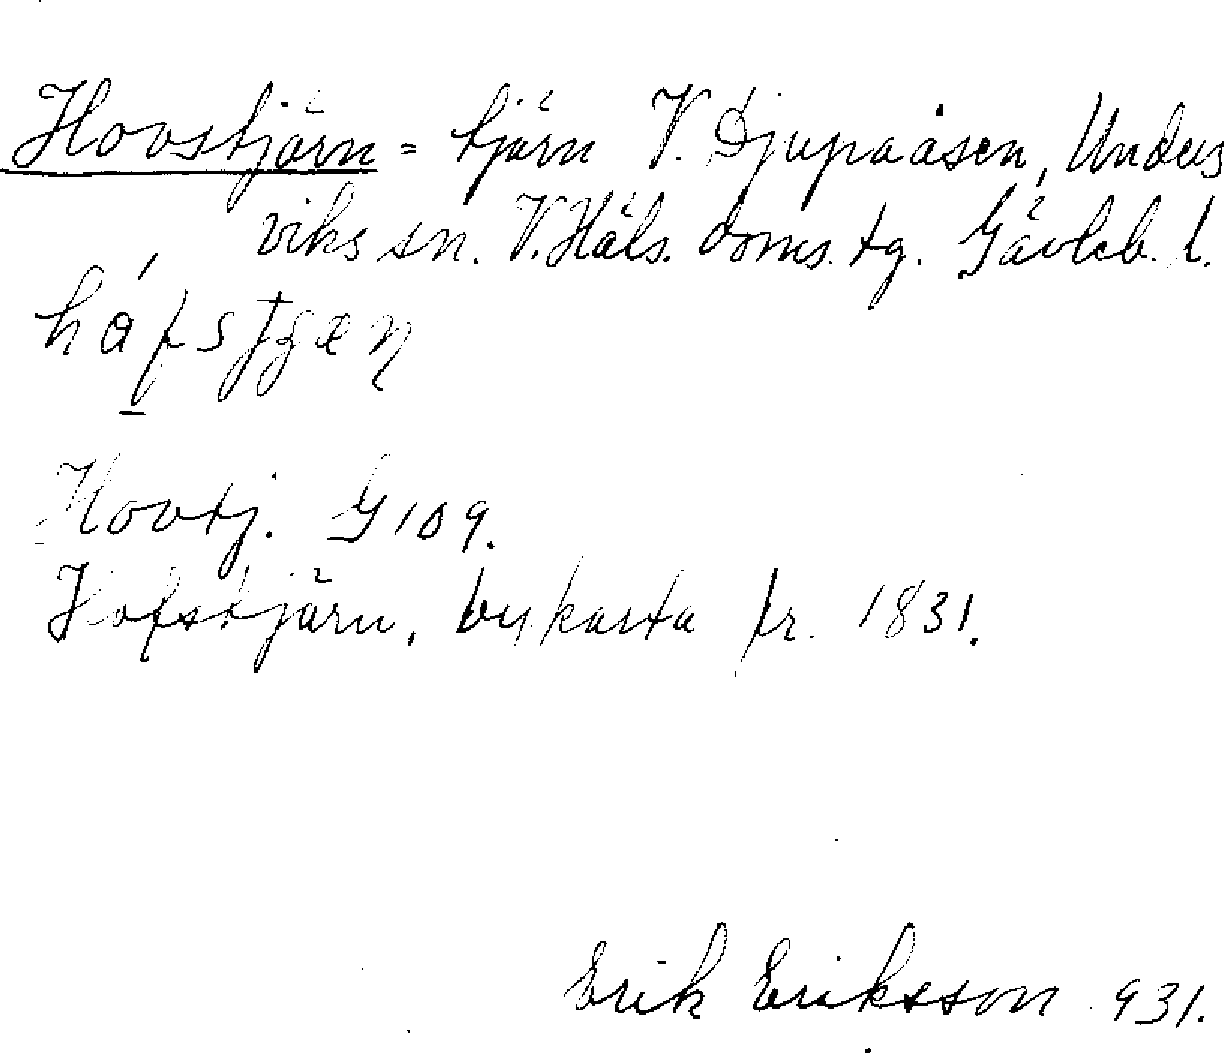 Hovstjärn = tjärn V. Djupaåsen, Unders
viks sn. V. Häls. doms. tg. Gävleb. l.
Hovtj. G 109.
Hofstjärn, bykarta fr. 1831.
Erik Eriksson 931.